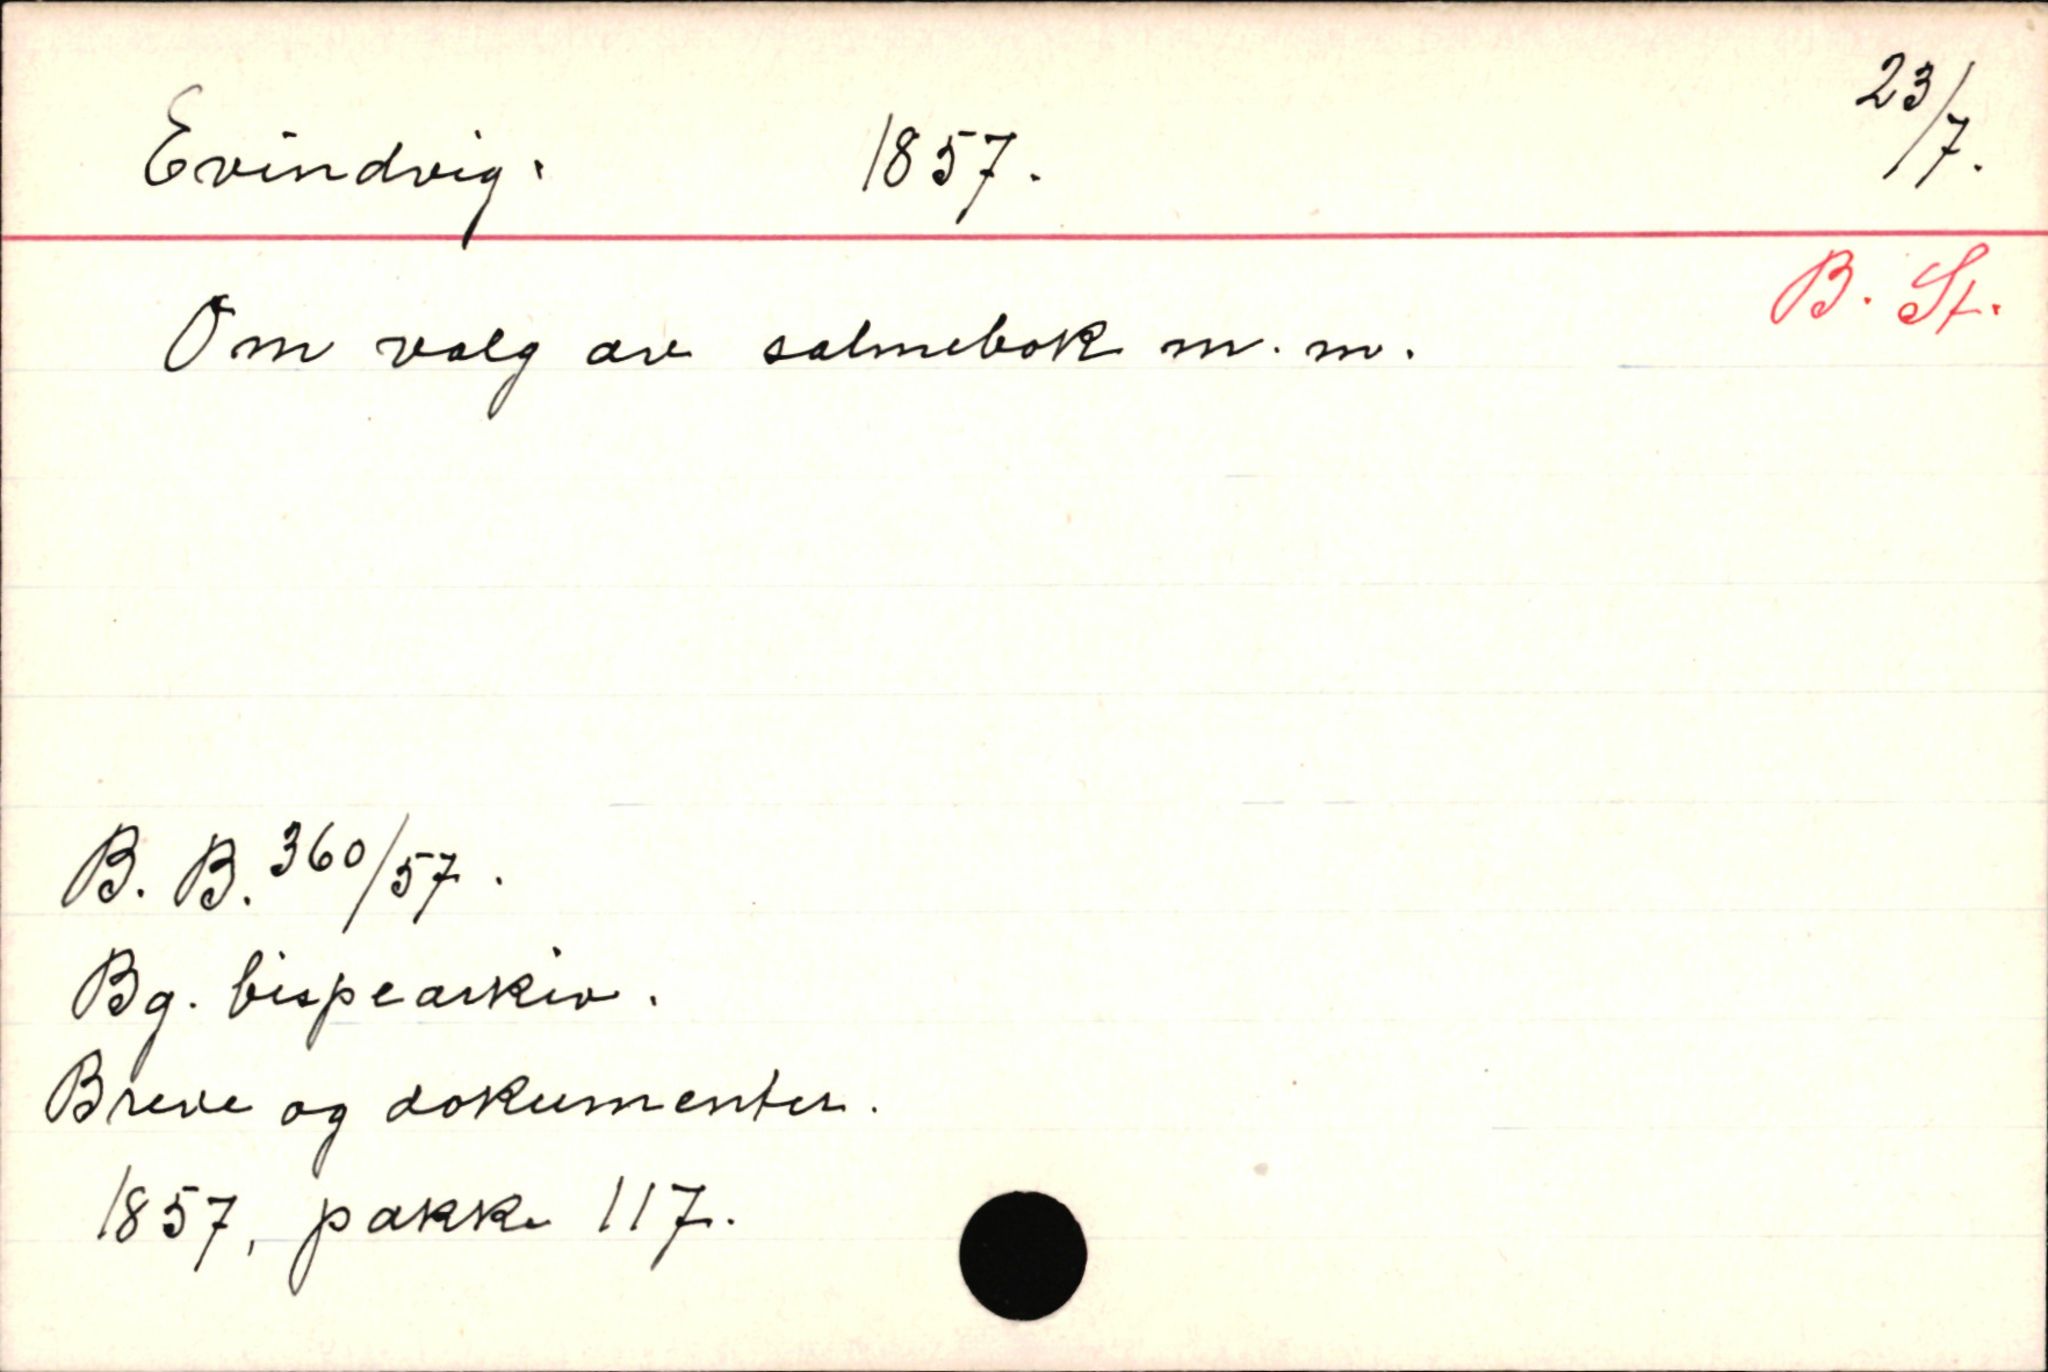 Evindvig. 1857. 23/7.
B. St.
Om valg av salmebok m. m.
B. B. 360/57.
Bg. bispearkiv.
Breve og dokumenter.
1857, pakke 117.